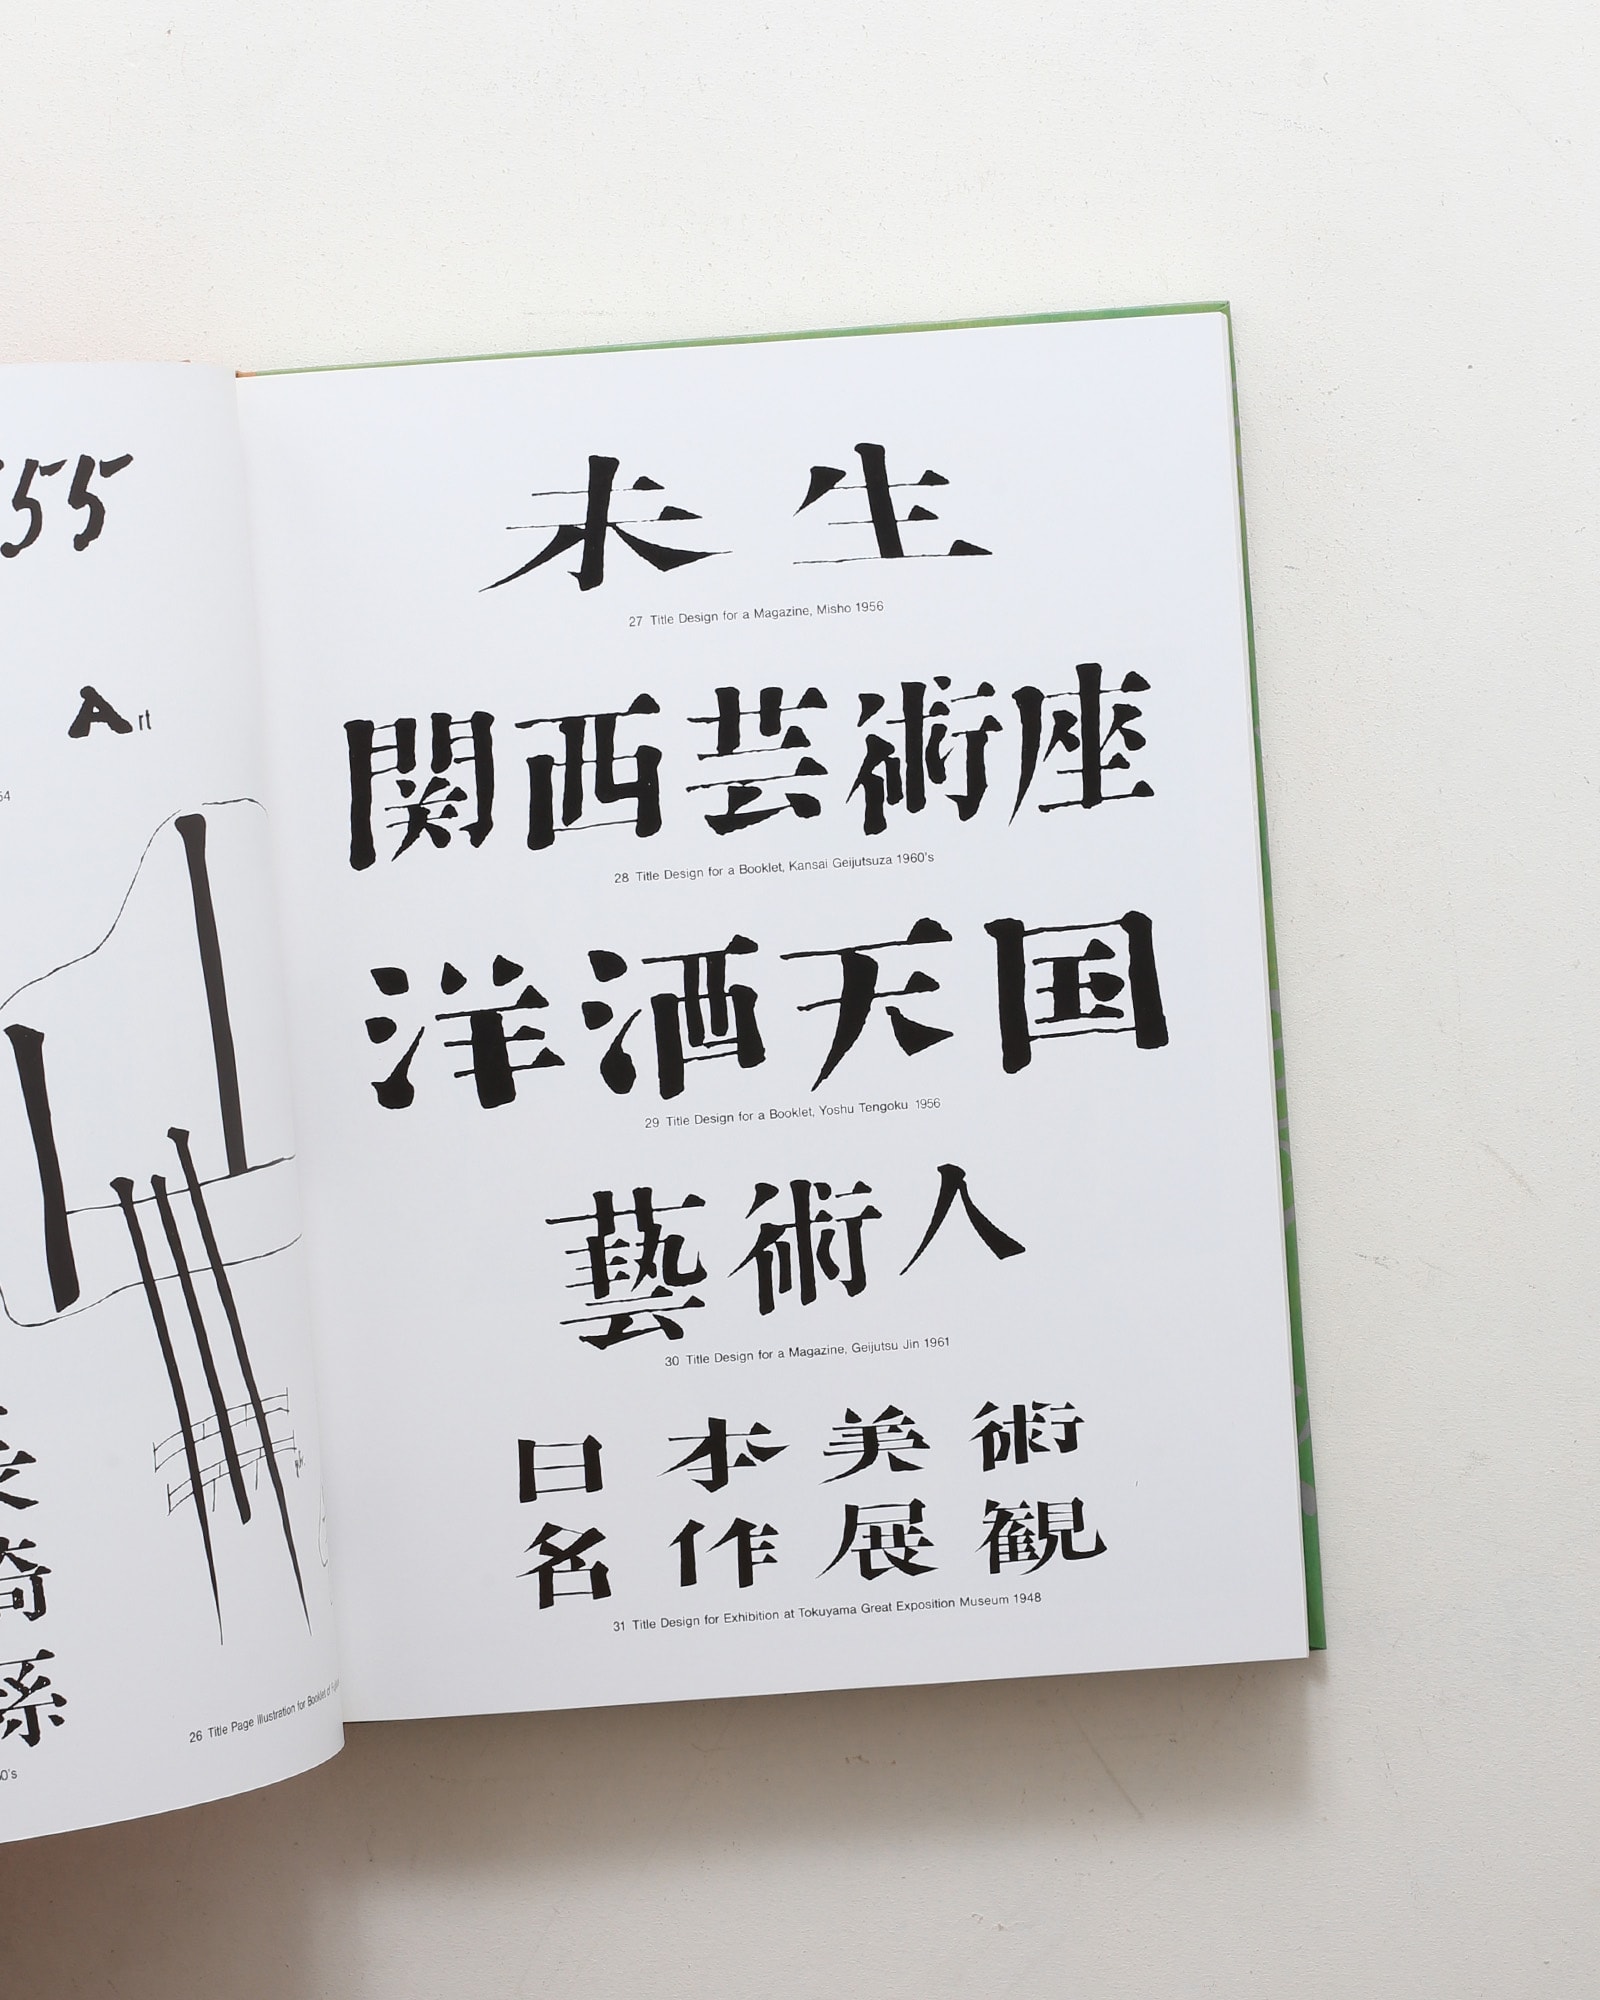 55
Art
54
26 Title Page Illustration for Booklet of
0's
未生
27 Title Design for a Magazine, Misho 1956
関西芸術座
28 Title Design for a Booklet, Kansai Geijutsuza 1960's
洋酒天国
29 Title Design for a Booklet, Yoshu Tengoku 1956
藝術人
30 Title Design for a Magazine, Geijutsu Jin 1961
日本美術
名作展観
31 Title Design for Exhibition at Tokuyama Great Exposition Museum 1948